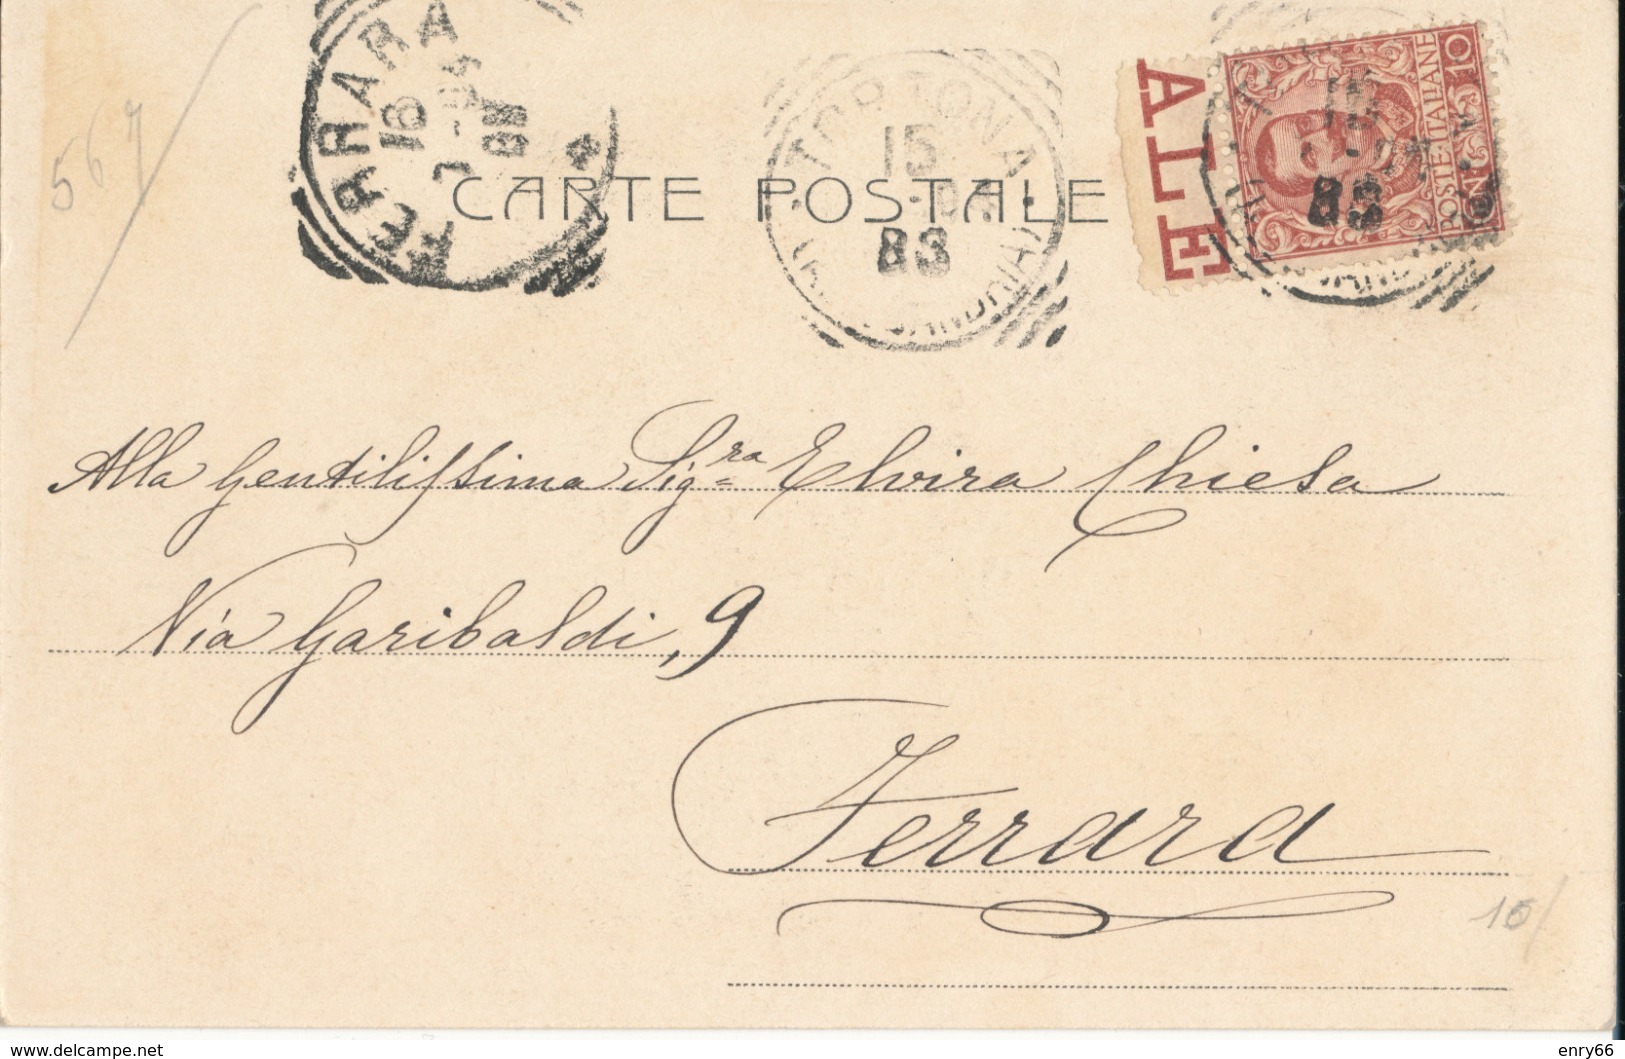 567/
FERRARA
16
TORTONA
15
83
ALE
POSTE·ITALIANE
10
CARTE POSTALE
Alla Gentilissima Sig.ra Elvira Chiesa
Via Garibaldi, 9
Ferrara
10/
www.delcampe.net
enry66